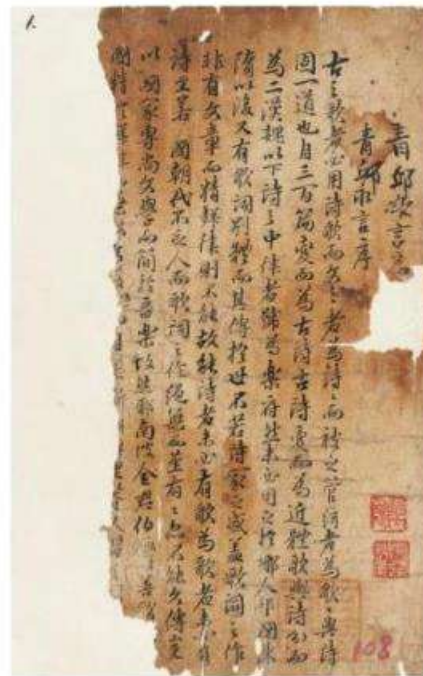 1.
青邱永言
青邱永言序
古之歌者必用詩歌而文之者為詩〻而被之管絃者為歌〻與詩
固一道也自三百篇變而為古詩古詩變而為近體歌與詩分而
為二漢魏以下詩之中律者號為樂府然未必用之於鄉人邦國陳
隋以後又有歌詞別體而其傳於世不若詩家之盛盖歌詞之作
非有文章而精聲律則不能故能詩者未必有歌為歌者未必有
詩至若 國朝代不乏人而歌詞之作絶無而堇有〻亦不能久傳豈
以國家專尚文學而簡於音樂故然耶南坡金君伯
108